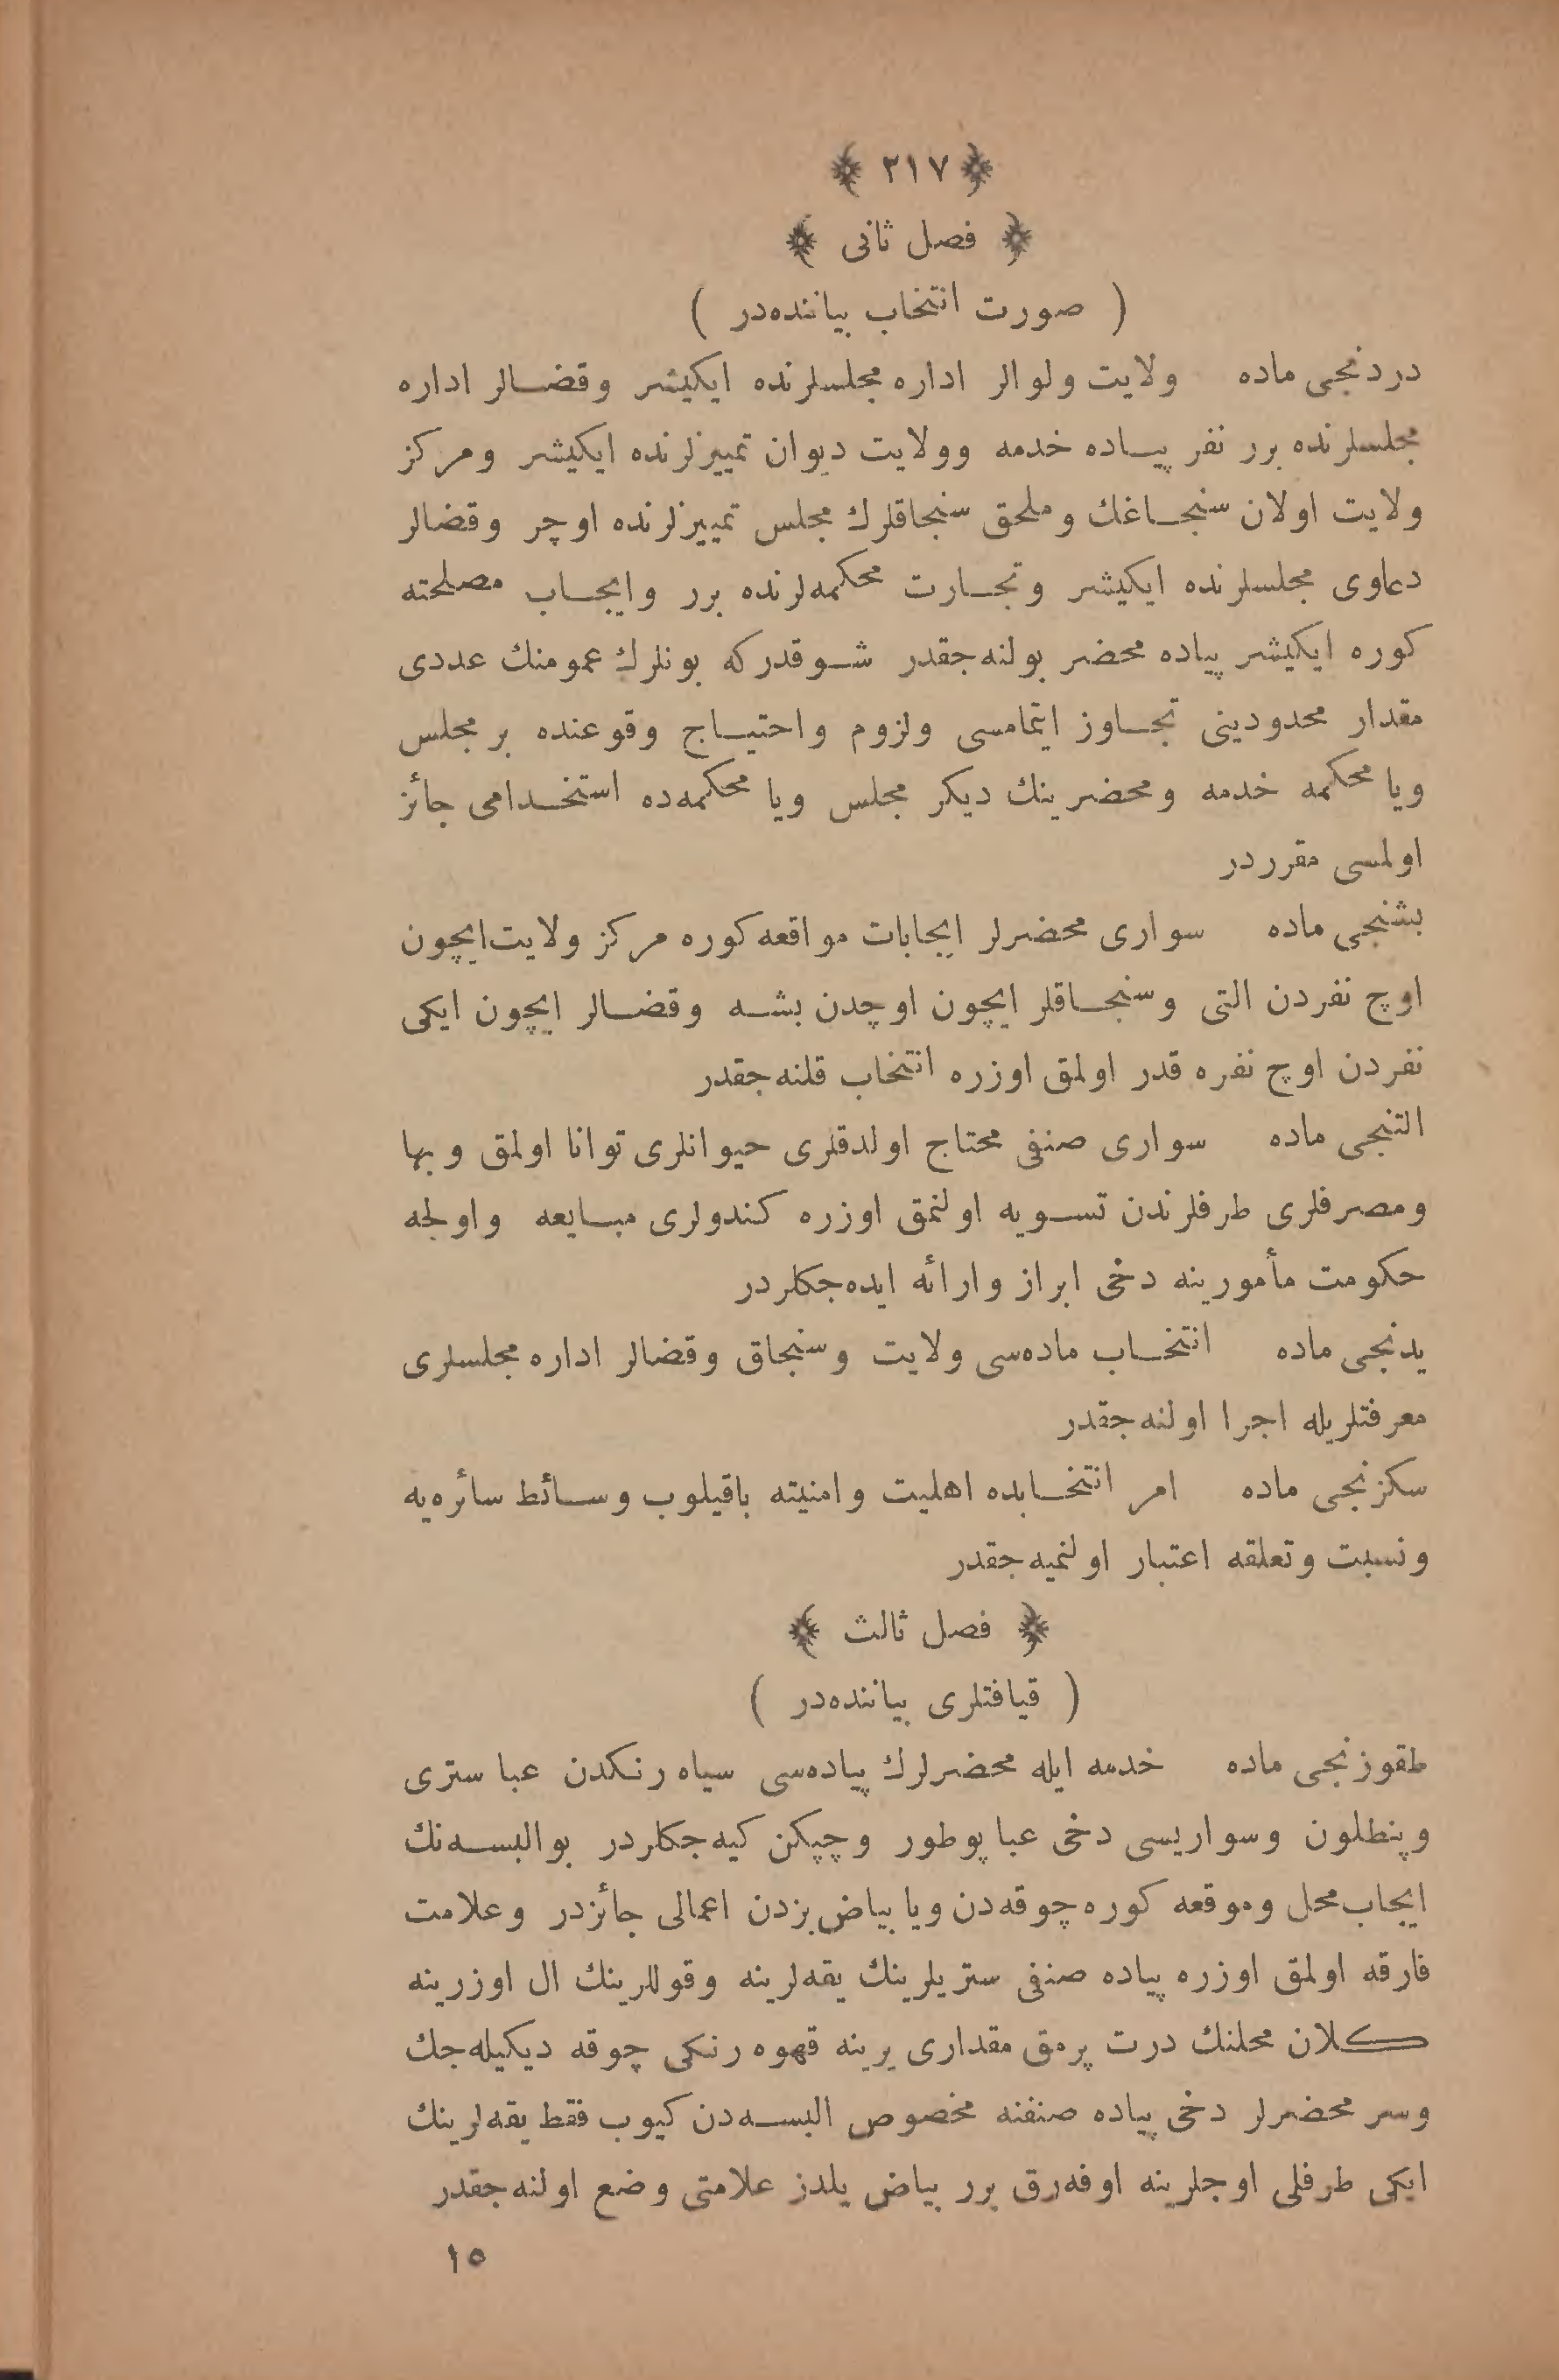 ﴿ ٢١٧ ﴾
﴿ فصل ثانی ﴾
( صورت انتخاب بیاننده‌در )
دردنجی ماده ولایت ولوالر اداره مجلسلرنده ایکیشر وقضالر اداره
مجلسلرنده برر نفر پیاده خدمه وولایت دیوان تمییزلرنده ایکیشر ومرکز
ولایت اولان سنجاغك وملحق سنجاقلرك مجلس تمییزلرنده اوچر وقضالر
دعاوی مجلسلرنده ایکیشر وتجارت محکمه‌لرنده برر وایجاب مصلحته
کوره ایکیشر پیاده محضر بولنه‌جقدر شوقدرکه بونلرك عمومنك عددی
مقدار محدودینی تجاوز ایتمامسی ولزوم واحتیاج وقوعنده بر مجلس
ویا محکمه خدمه ومحضرینك دیکر مجلس ویا محکمه‌ده استخدامی جائز
اولمسی مقرردر
بشنجی ماده سواری محضرلر ایجابات مواقعه کوره مرکز ولایت ایچون
اوچ نفردن التی وسنجاقلر ایچون اوچدن بشه وقضالر ایچون ایکی
نفردن اوچ نفره قدر اولمق اوزره انتخاب قلنه‌جقدر
التنجی ماده سواری صنفی محتاج اولدقلری حیوانلری توانا اولمق وبها
ومصرفلری طرفلرندن تسویه اولنمق اوزره کندولری مبایعه واولجه
حکومت مأمورینه دخی ابراز وارائه ایده‌جکلردر
یدنجی ماده انتخاب ماده‌سی ولایت وسنجاق وقضالر اداره مجلسلری
معرفتلریله اجرا اولنه‌جقدر
سکزنجی ماده امر انتخابده اهلیت وامنیته باقیلوب وسائط سائره‌یه
ونسبت وتعلقه اعتبار اولنمیه‌جقدر
﴿ فصل ثالث ﴾
( قیافتلری بیاننده‌در )
طقوزنجی ماده خدمه ایله محضرلرك پیاده‌سی سیاه رنکدن عبا ستری
وپنطلون وسواریسی دخی عبا پوطور وچپکن کیه‌جکلردر بو البسه‌نك
ایجاب محل وموقعه کوره چوقه‌دن ویا بیاض بزدن اعمالی جائزدر وعلامت
فارقه اولمق اوزره پیاده صنفی ستریلرینك یقه‌لرینه وقوللرینك ال اوزرینه
کلان محلنك درت پرمق مقداری یرینه قهوه رنکی چوقه دیکیله‌جك
وسر محضرلر دخی پیاده صنفنه مخصوص البسه‌دن کیوب فقط یقه‌لرینك
ایکی طرفلی اوجلرینه اوفه‌رق برر بیاض یلدز علامتی وضع اولنه‌جقدر
١٥